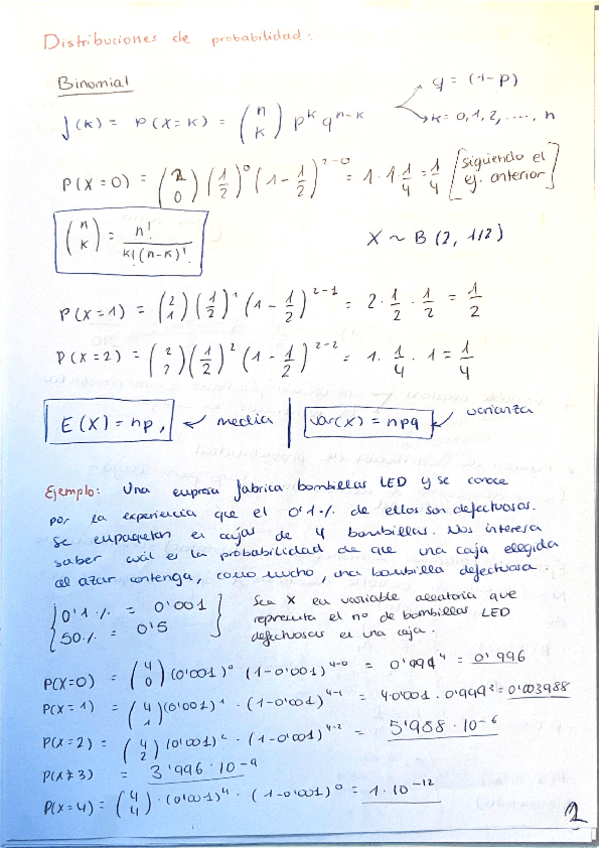 Distribuciones de probabilidad:
Binomial
f(k) = P(X=k) = (n k) p^k q^(n-k) → q = (1-p) → k = 0,1,2,....,n
P(X=0) = (2 0) (1/2)^0 (1 - 1/2)^(2-0) = 1·1·1/4 = 1/4 [siguiendo el ej. anterior]
(n k) = n! / k!(n-k)!
X ~ B(2, 1/2)
P(X=1) = (2 1) (1/2)^1 (1 - 1/2)^(2-1) = 2 · 1/2 · 1/2 = 1/2
P(X=2) = (2 2) (1/2)^2 (1 - 1/2)^(2-2) = 1 · 1/4 · 1 = 1/4
E(X) = np, ← media | var(X) = npq ← varianza
Ejemplo: Una empresa fabrica bombillas LED y se conoce
por la experiencia que el 0'1% de ellos son defectuosas.
Se empaquetan en cajas de 4 bombillas. Nos interesa
saber cuál es la probabilidad de que una caja elegida
al azar contenga, como mucho, una bombilla defectuosa.
{0'1% = 0'001
50% = 0'5}
Sea X en variable aleatoria que
representa el nº de bombillas LED
defectuosas en una caja.
P(X=0) = (4 0) (0'001)^0 (1-0'001)^(4-0) = 0'999^4 = 0'996
P(X=1) = (4 1) (0'001)^1 · (1-0'001)^(4-1) = 4·0'001 · 0'999^3 = 0'003988
P(X=2) = (4 2) (0'001)^2 · (1-0'001)^(4-2) = 5'988 · 10^-6
P(X=3) = 3'996 · 10^-9
P(X=4) = (4 4) · (0'001)^4 · (1-0'001)^0 = 1 · 10^-12
2